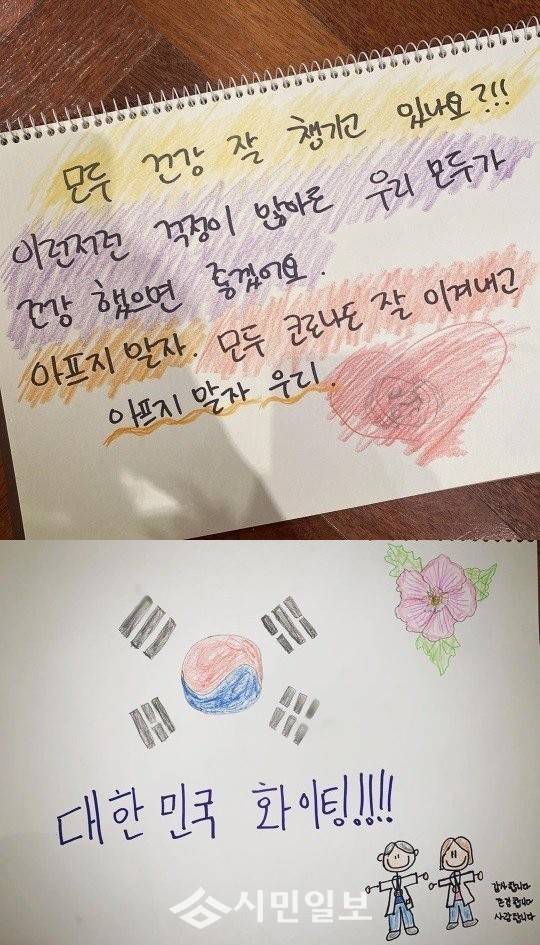 모두 건강 잘 챙기고 있나요?!!
이런저런 걱정이 많아도 우리 모두가
건강 했으면 좋겠어요.
아프지 말자. 모두 코로나도 잘 이겨내고
아프지 말자 우리.
대한민국 화이팅!!!!
감사합니다
존경합니다
사랑합니다
시민일보